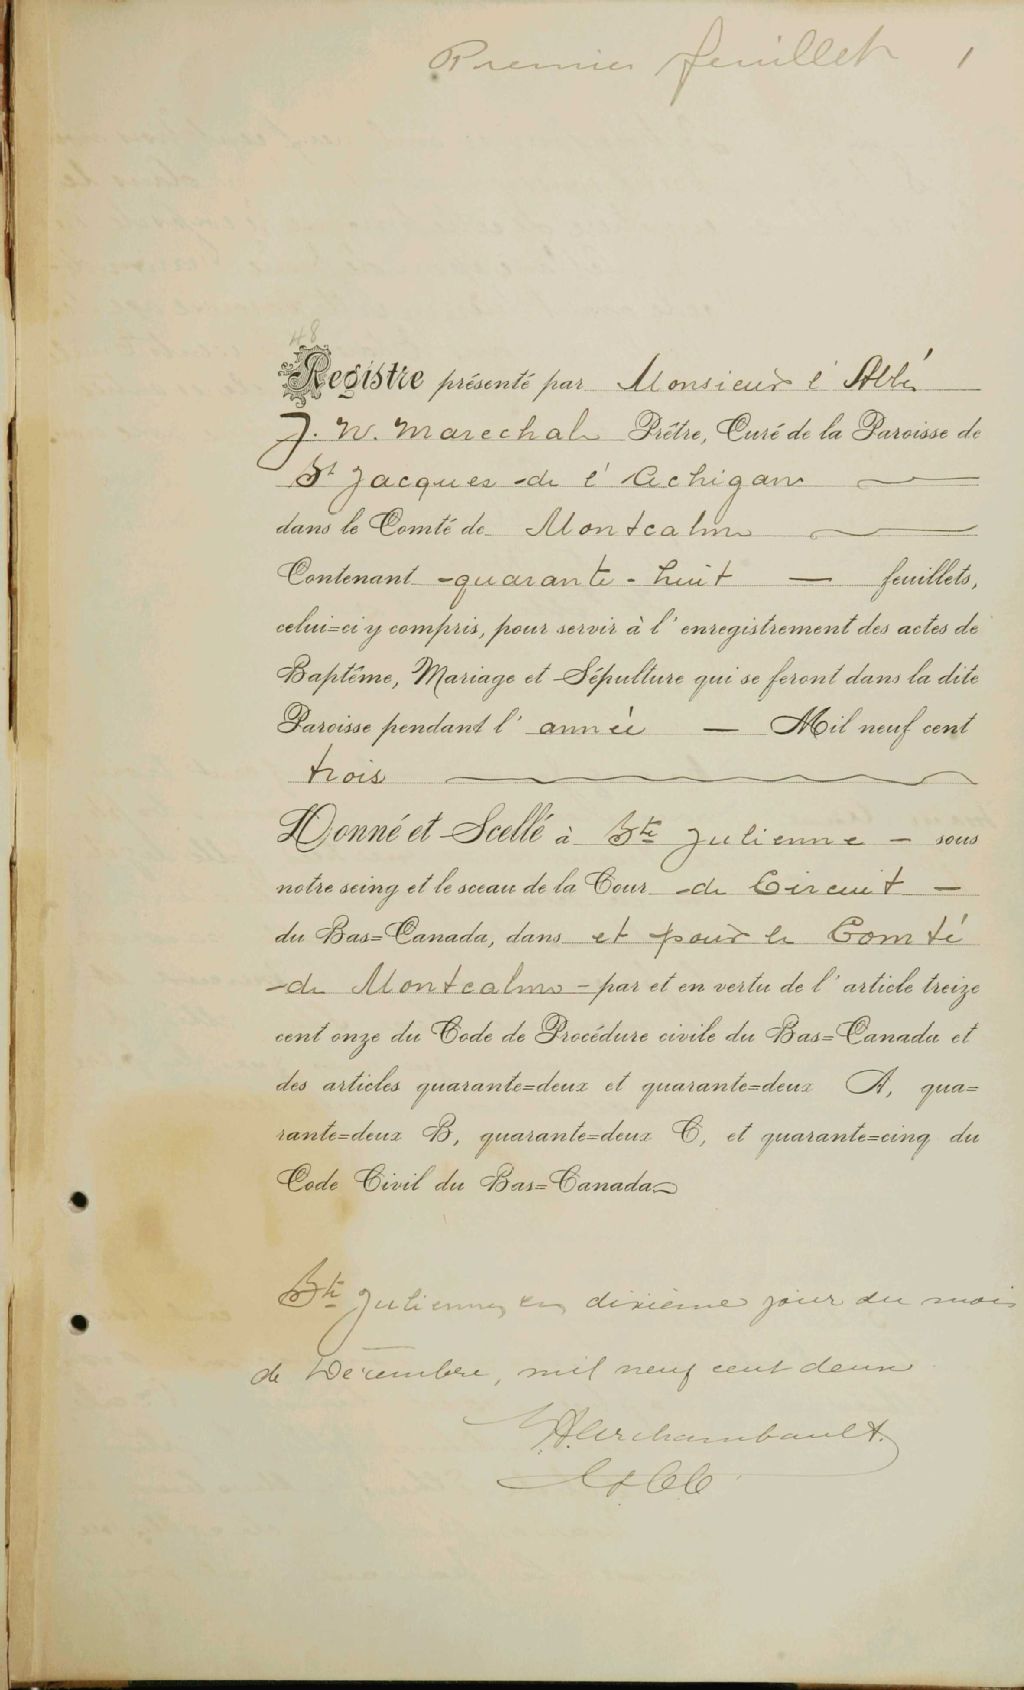 Premier feuillet 1
48
Registre présenté par Monsieur l'Abbé
J. N. Marechal Prêtre, Curé de la Paroisse de
St Jacques de l'Achigan
dans le Comté de Montcalm
Contenant quarante-huit — feuillets,
celui=ci y compris, pour servir à l'enregistrement des actes de
Baptême, Mariage et Sépulture qui se feront dans la dite
Paroisse pendant l'année — Mil neuf cent
trois
Donné et Scellé à Ste Julienne — sous
notre seing et le sceau de la Cour de Circuit —
du Bas=Canada, dans et pour le Comté
de Montcalm — par et en vertu de l'article treize
cent onze du Code de Procédure civile du Bas=Canada et
des articles quarante=deux et quarante=deux A, qua=
rante=deux B, quarante=deux C, et quarante=cinq du
Code Civil du Bas=Canada
Ste Julienne, ce dixième jour du mois
de Décembre, mil neuf cent deux
Archambault